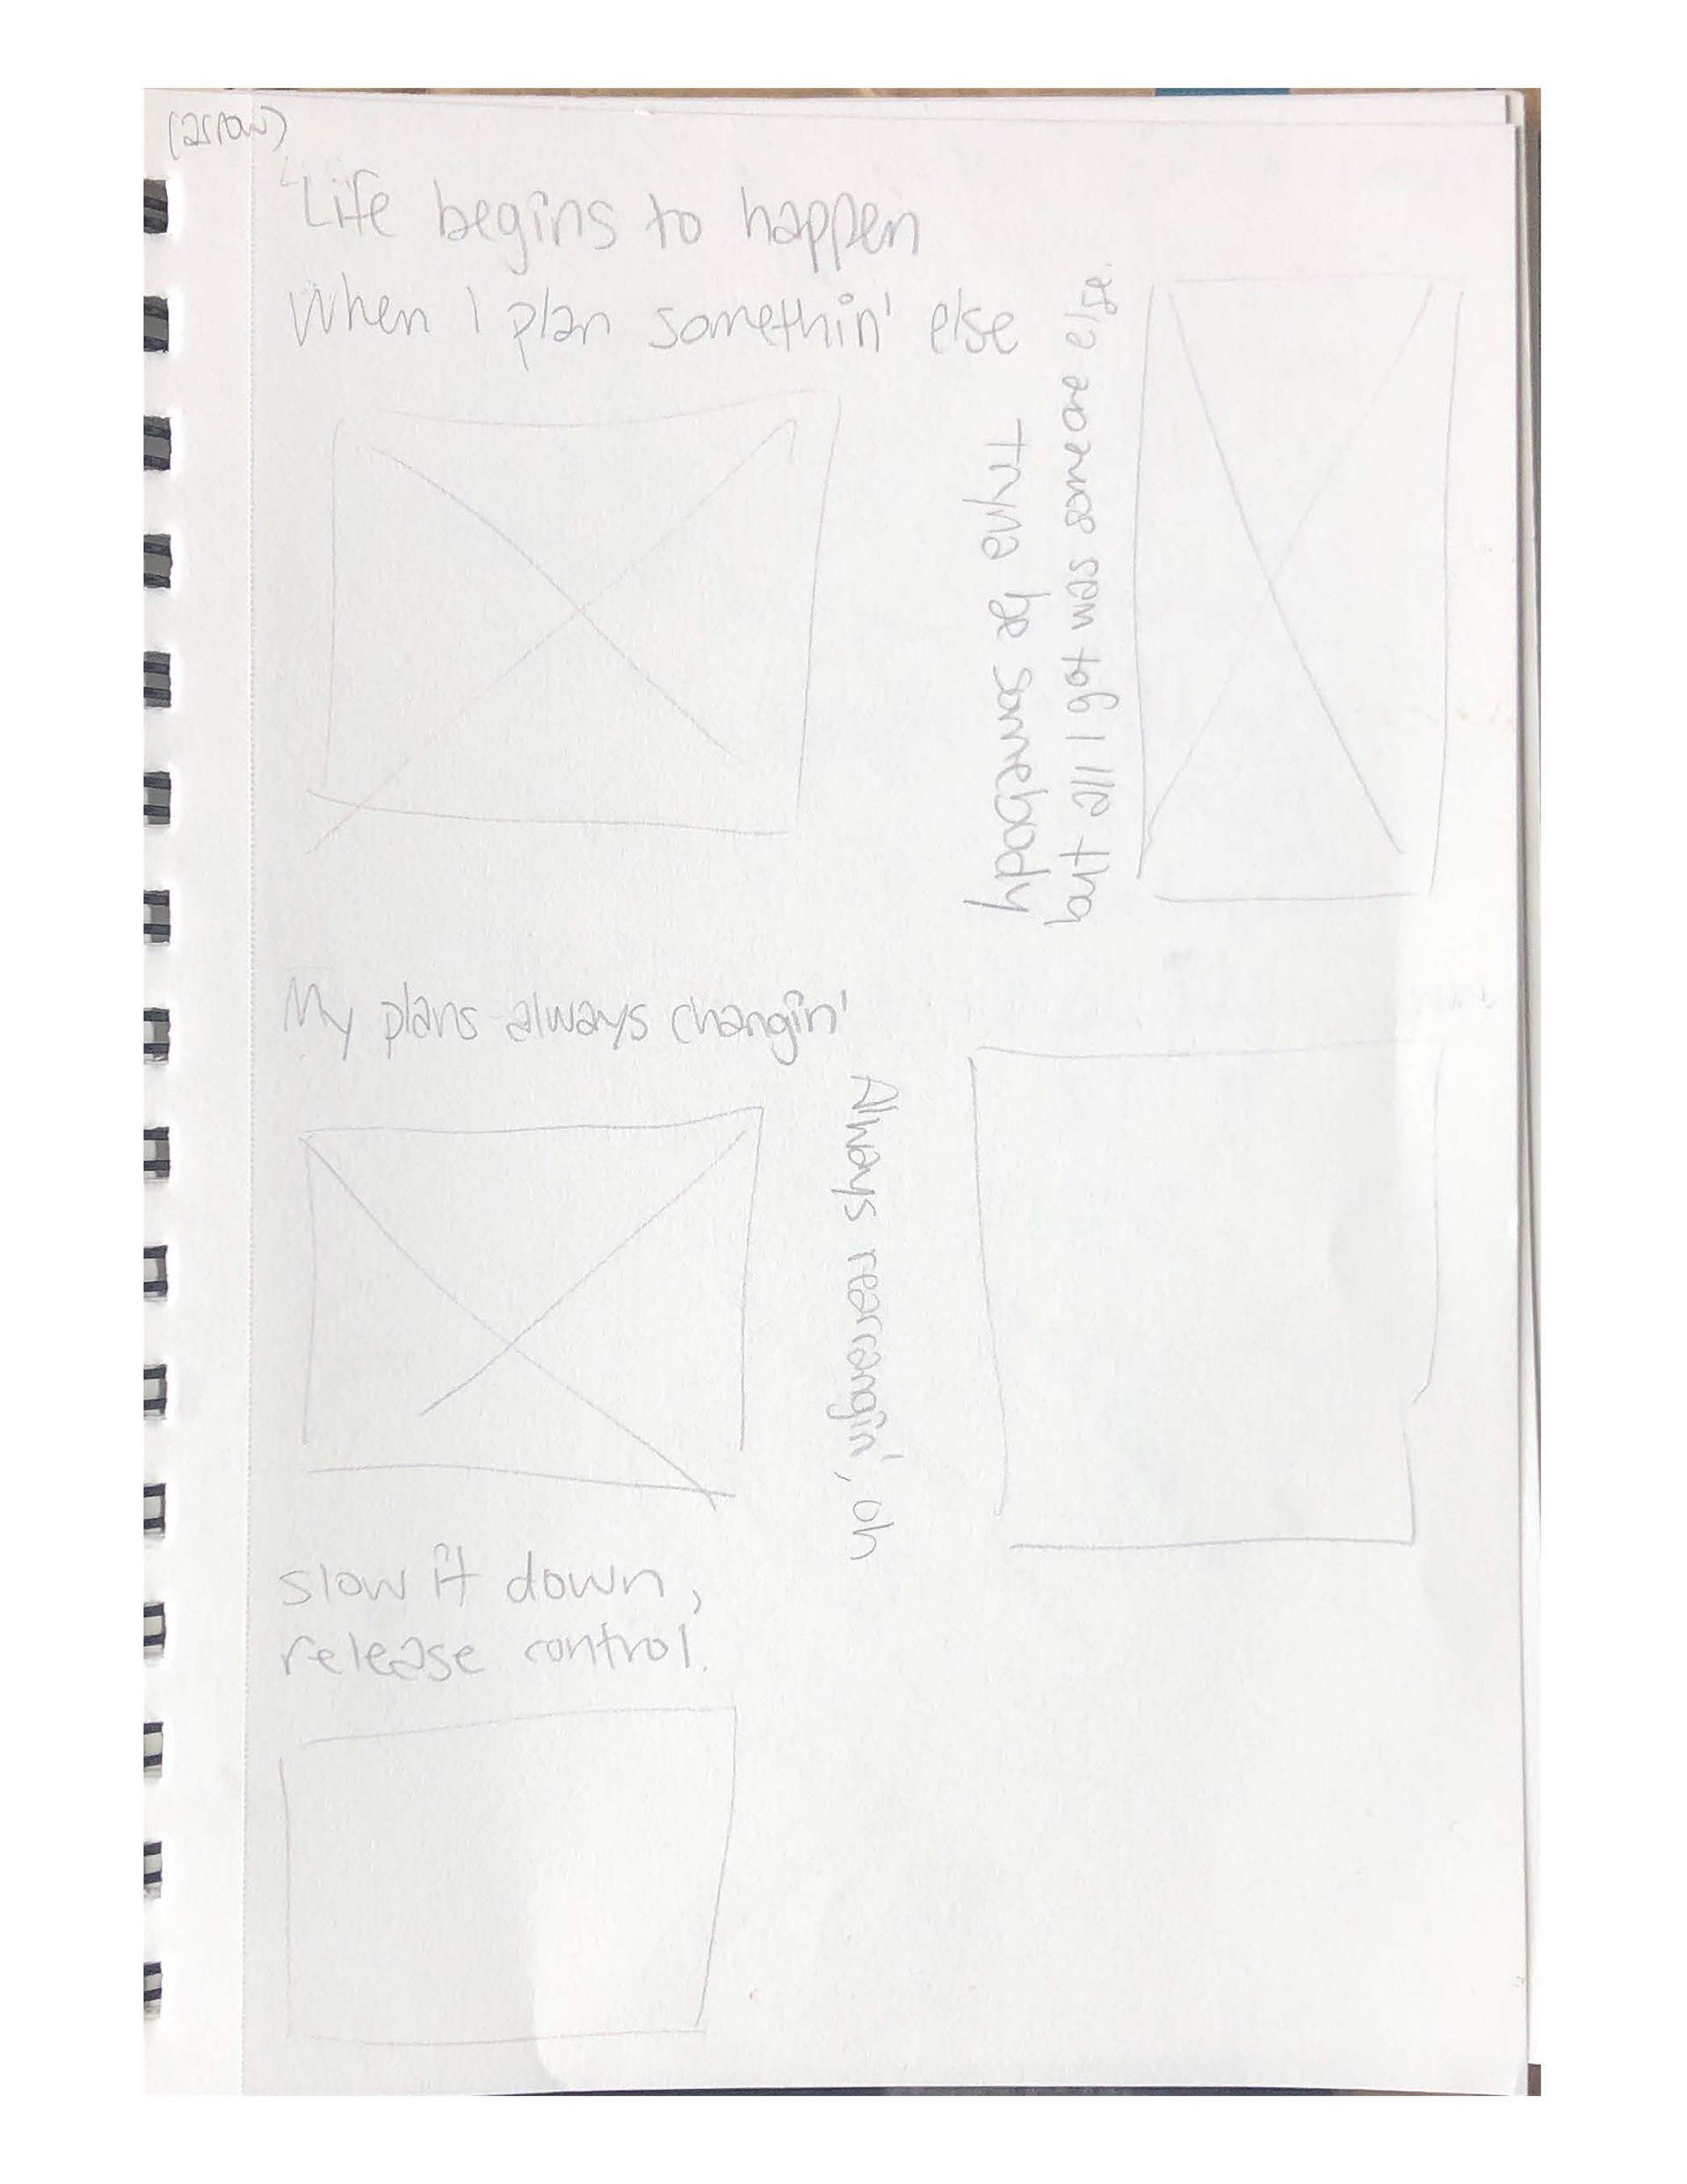 Life begins to happen
When I plan somethin' else
Tryna be somebody
but all I got was someone else.
My plans always changin'
Always rearrangin', oh
slow it down,
release control.